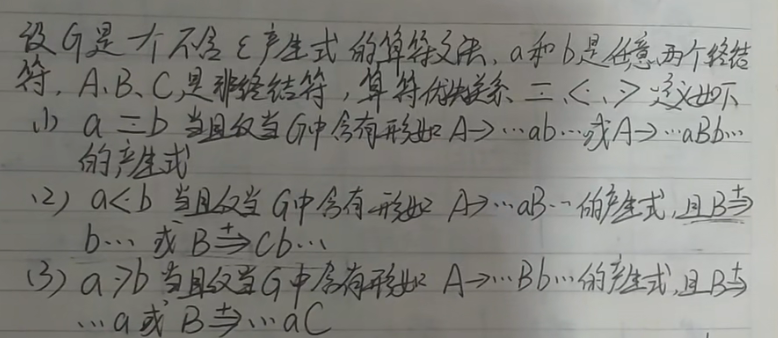 设G是一个不含ε产生式的算符文法,a和b是任意两个终结
符,A、B、C是非终结符,算符优先关系 =、<·、·> 定义如下
(1) a=b 当且仅当G中含有形如 A→…ab…或A→…aBb…
的产生式
(2) a<·b 当且仅当G中含有形如 A→…aB…的产生式,且B⇒+
b…或B⇒+Cb…
(3) a·>b 当且仅当G中含有形如 A→…Bb…的产生式,且B⇒+
…a或B⇒+…aC